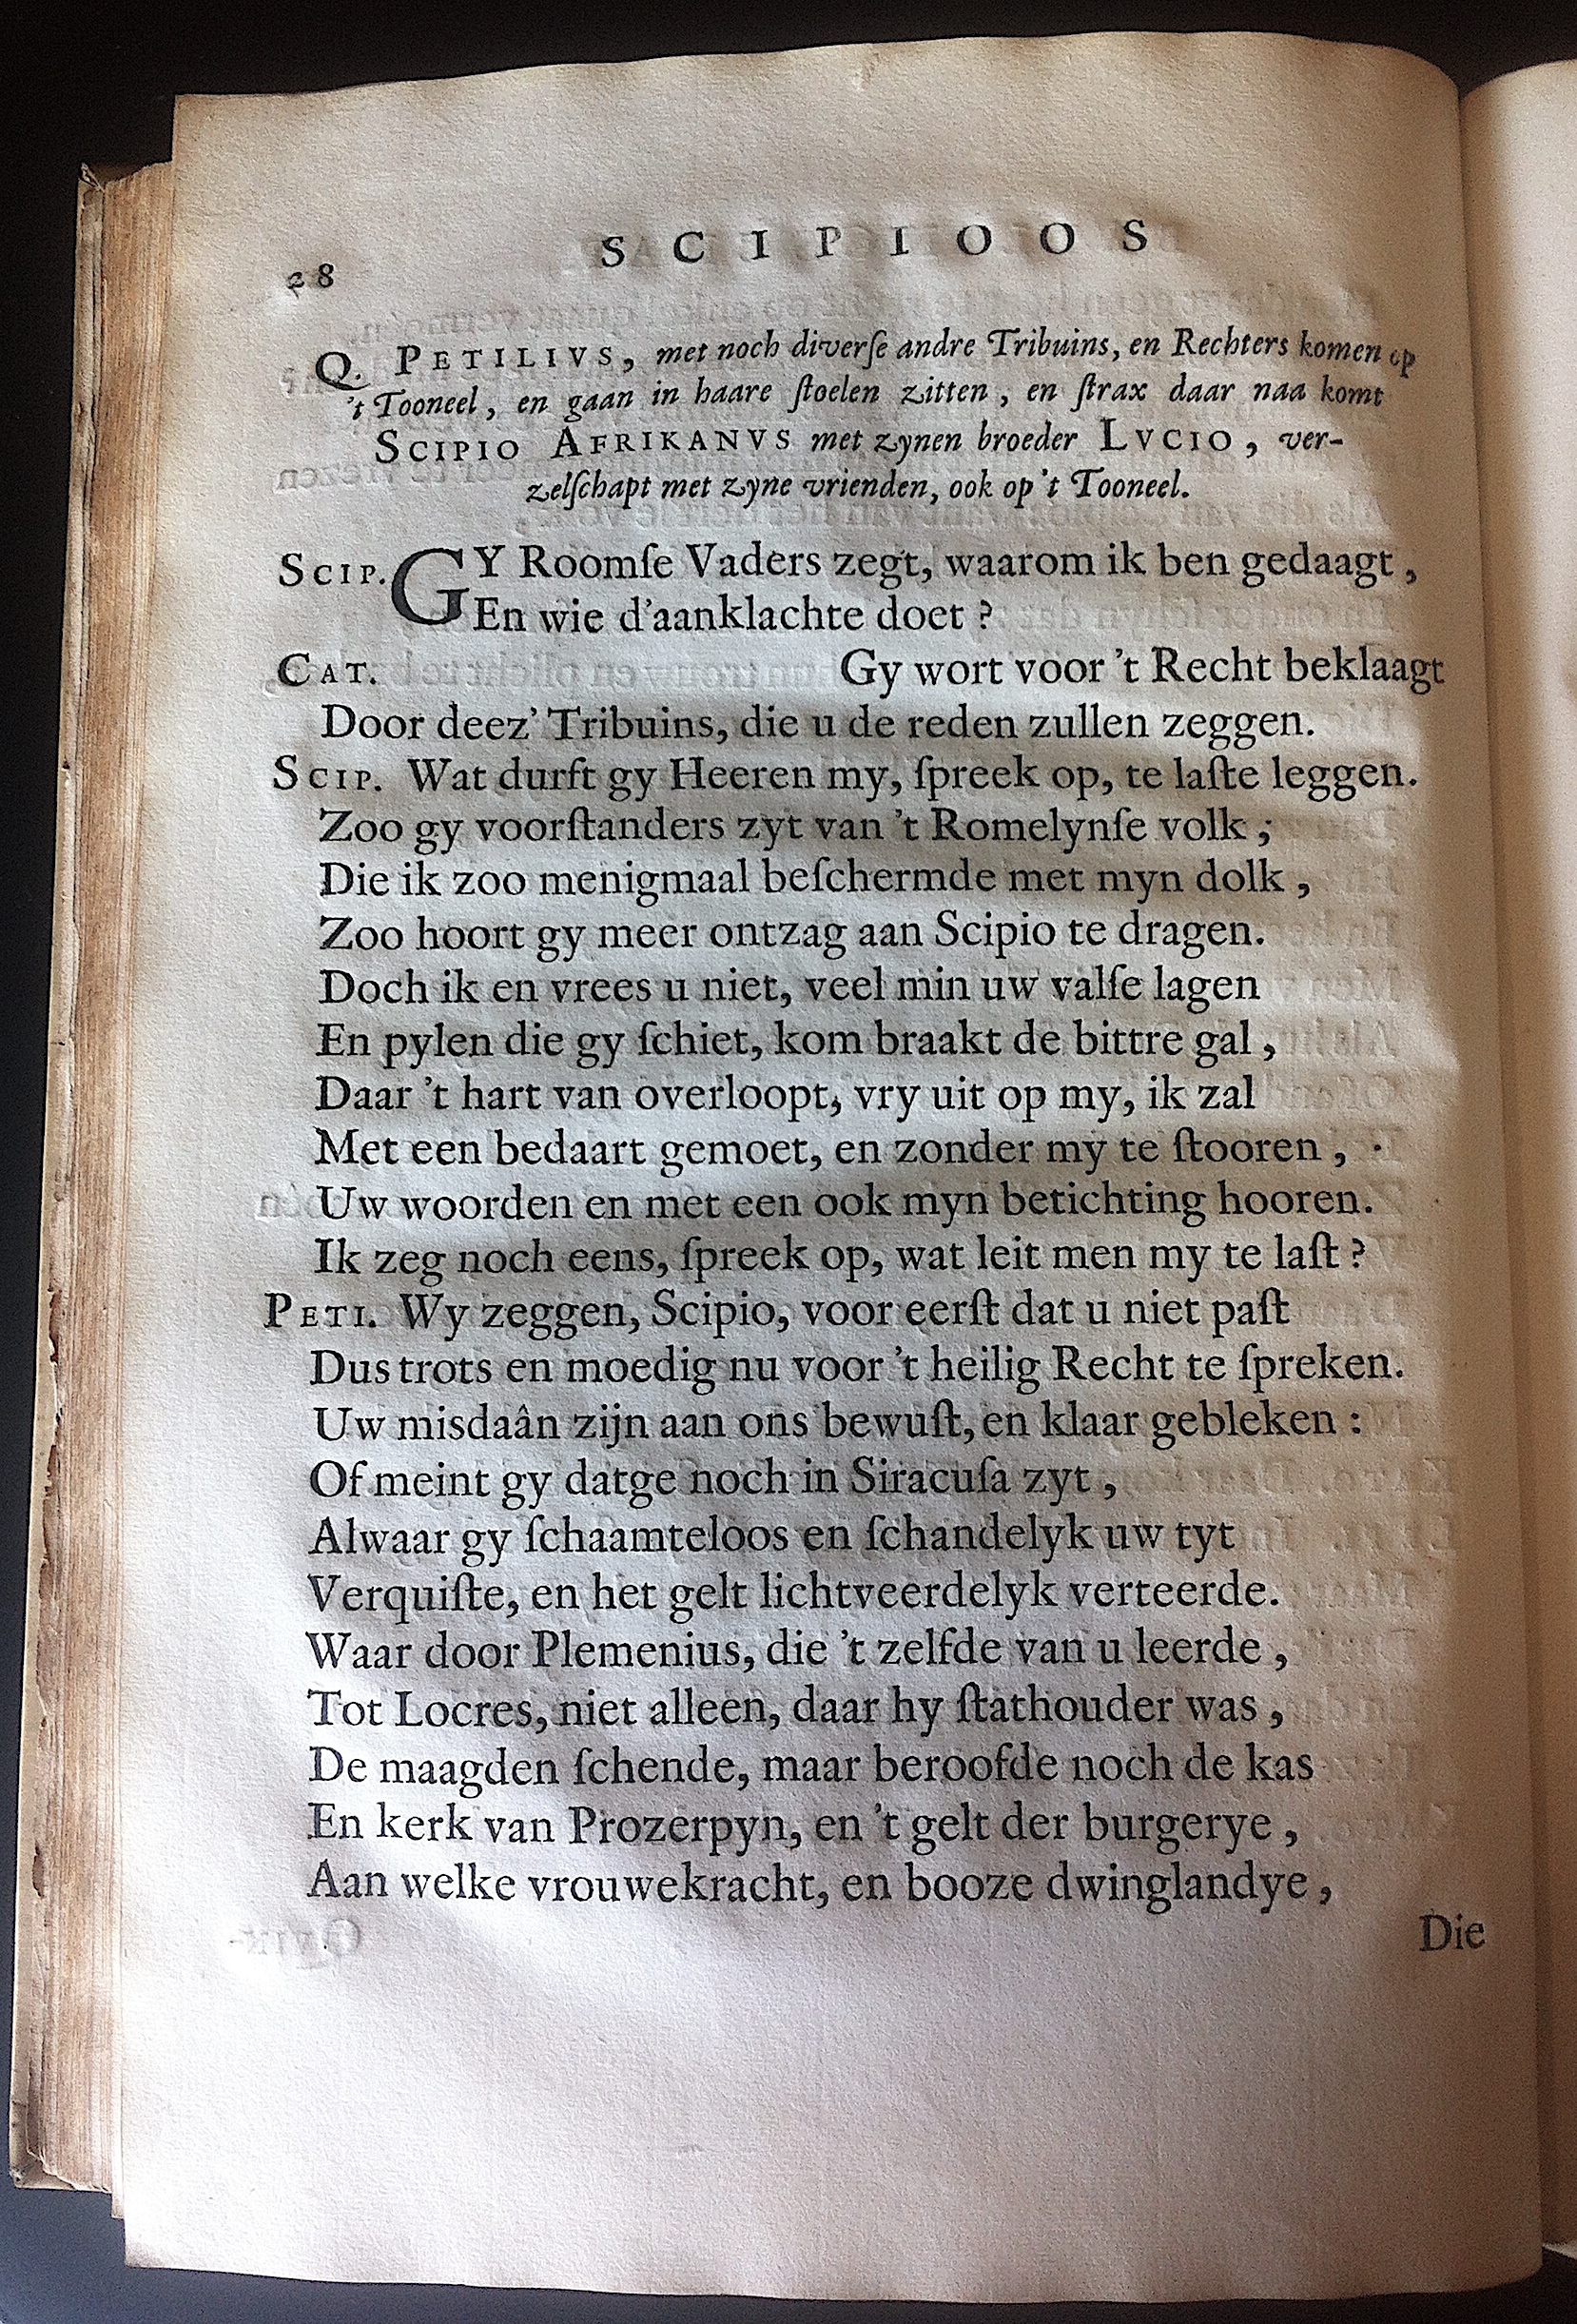 S C I P I O O S
28
Q. PETILIVS, met noch diverſe andre Tribuins, en Rechters komen op
't Tooneel, en gaan in haare ſtoelen zitten, en ſtrax daar naa komt
SCIPIO AFRIKANVS met zynen broeder LVCIO, ver-
zelſchapt met zyne vrienden, ook op 't Tooneel.
SCIP. GY Roomſe Vaders zegt, waarom ik ben gedaagt,
En wie d'aanklachte doet?
CAT. Gy wort voor 't Recht beklaagt
Door deez' Tribuins, die u de reden zullen zeggen.
SCIP. Wat durft gy Heeren my, ſpreek op, te laſte leggen.
Zoo gy voorſtanders zyt van 't Romelynſe volk;
Die ik zoo menigmaal beſchermde met myn dolk,
Zoo hoort gy meer ontzag aan Scipio te dragen.
Doch ik en vrees u niet, veel min uw valſe lagen
En pylen die gy ſchiet, kom braakt de bittre gal,
Daar 't hart van overloopt, vry uit op my, ik zal
Met een bedaart gemoet, en zonder my te ſtooren,
Uw woorden en met een ook myn betichting hooren.
Ik zeg noch eens, ſpreek op, wat leit men my te laſt?
PETI. Wy zeggen, Scipio, voor eerſt dat u niet paſt
Dus trots en moedig nu voor 't heilig Recht te ſpreken.
Uw misdaân zijn aan ons bewuſt, en klaar gebleken:
Of meint gy datge noch in Siracuſa zyt,
Alwaar gy ſchaamteloos en ſchandelyk uw tyt
Verquiſte, en het gelt lichtveerdelyk verteerde.
Waar door Plemenius, die 't zelfde van u leerde,
Tot Locres, niet alleen, daar hy ſtathouder was,
De maagden ſchende, maar beroofde noch de kas
En kerk van Prozerpyn, en 't gelt der burgerye,
Aan welke vrouwekracht, en booze dwinglandye,
Die